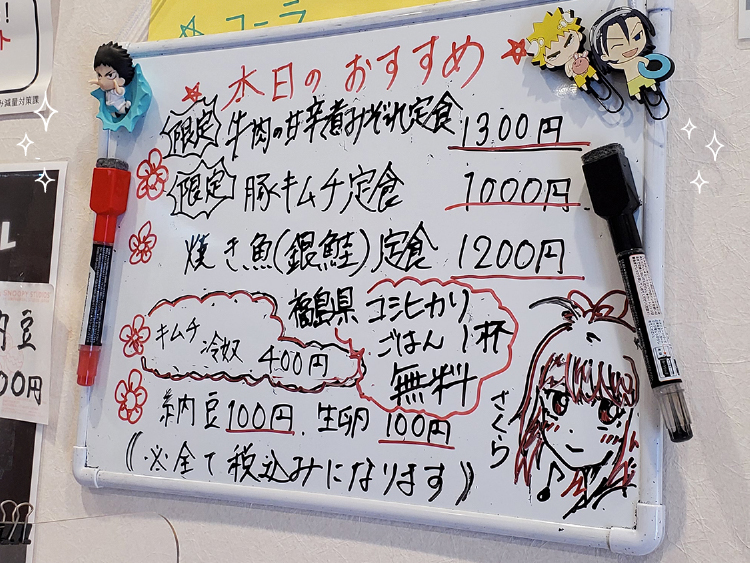 コーラ
ト
み減量対策課
本日のおすすめ
限定 牛肉の甘辛煮みぞれ定食 1300円
限定 豚キムチ定食 1000円
焼き魚(銀鮭)定食 1200円
福島県 コシヒカリ
ごはん 1杯
無料
キムチ
冷奴 400円
納豆 100円. 生卵 100円
さくら
(※全て税込みになります)
ル
内豆
00円